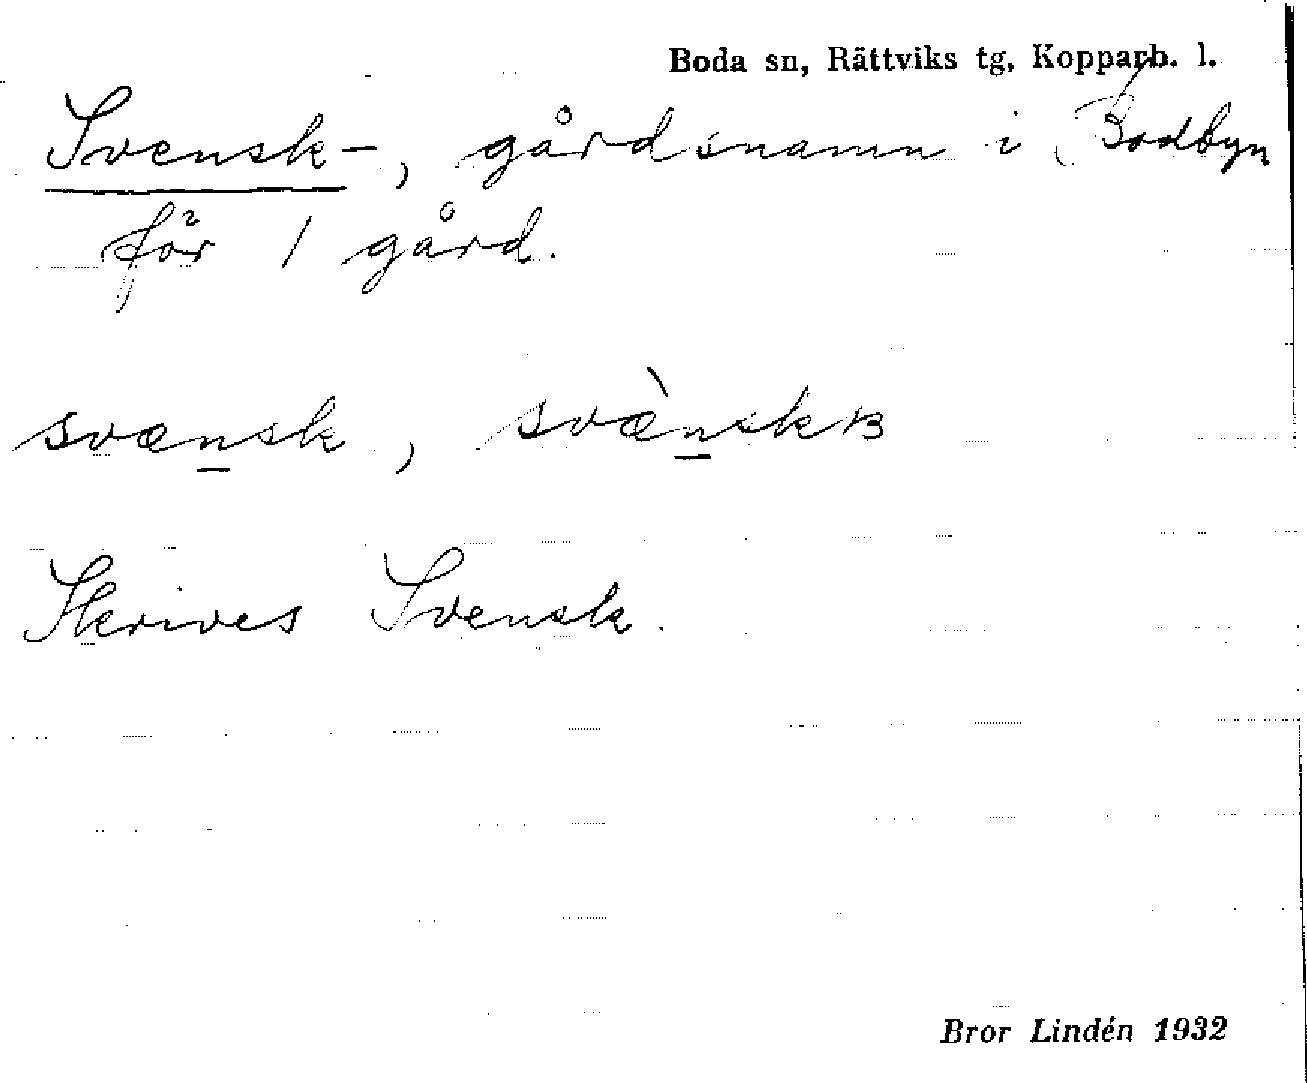 Boda sn, Rättviks tg, Kopparb. l.
Svensk-, gårdsnamn i Bodbyn
för 1 gård.
svænsk, svæ̀nskɞ
Skrives Svensk.
Bror Lindén 1932